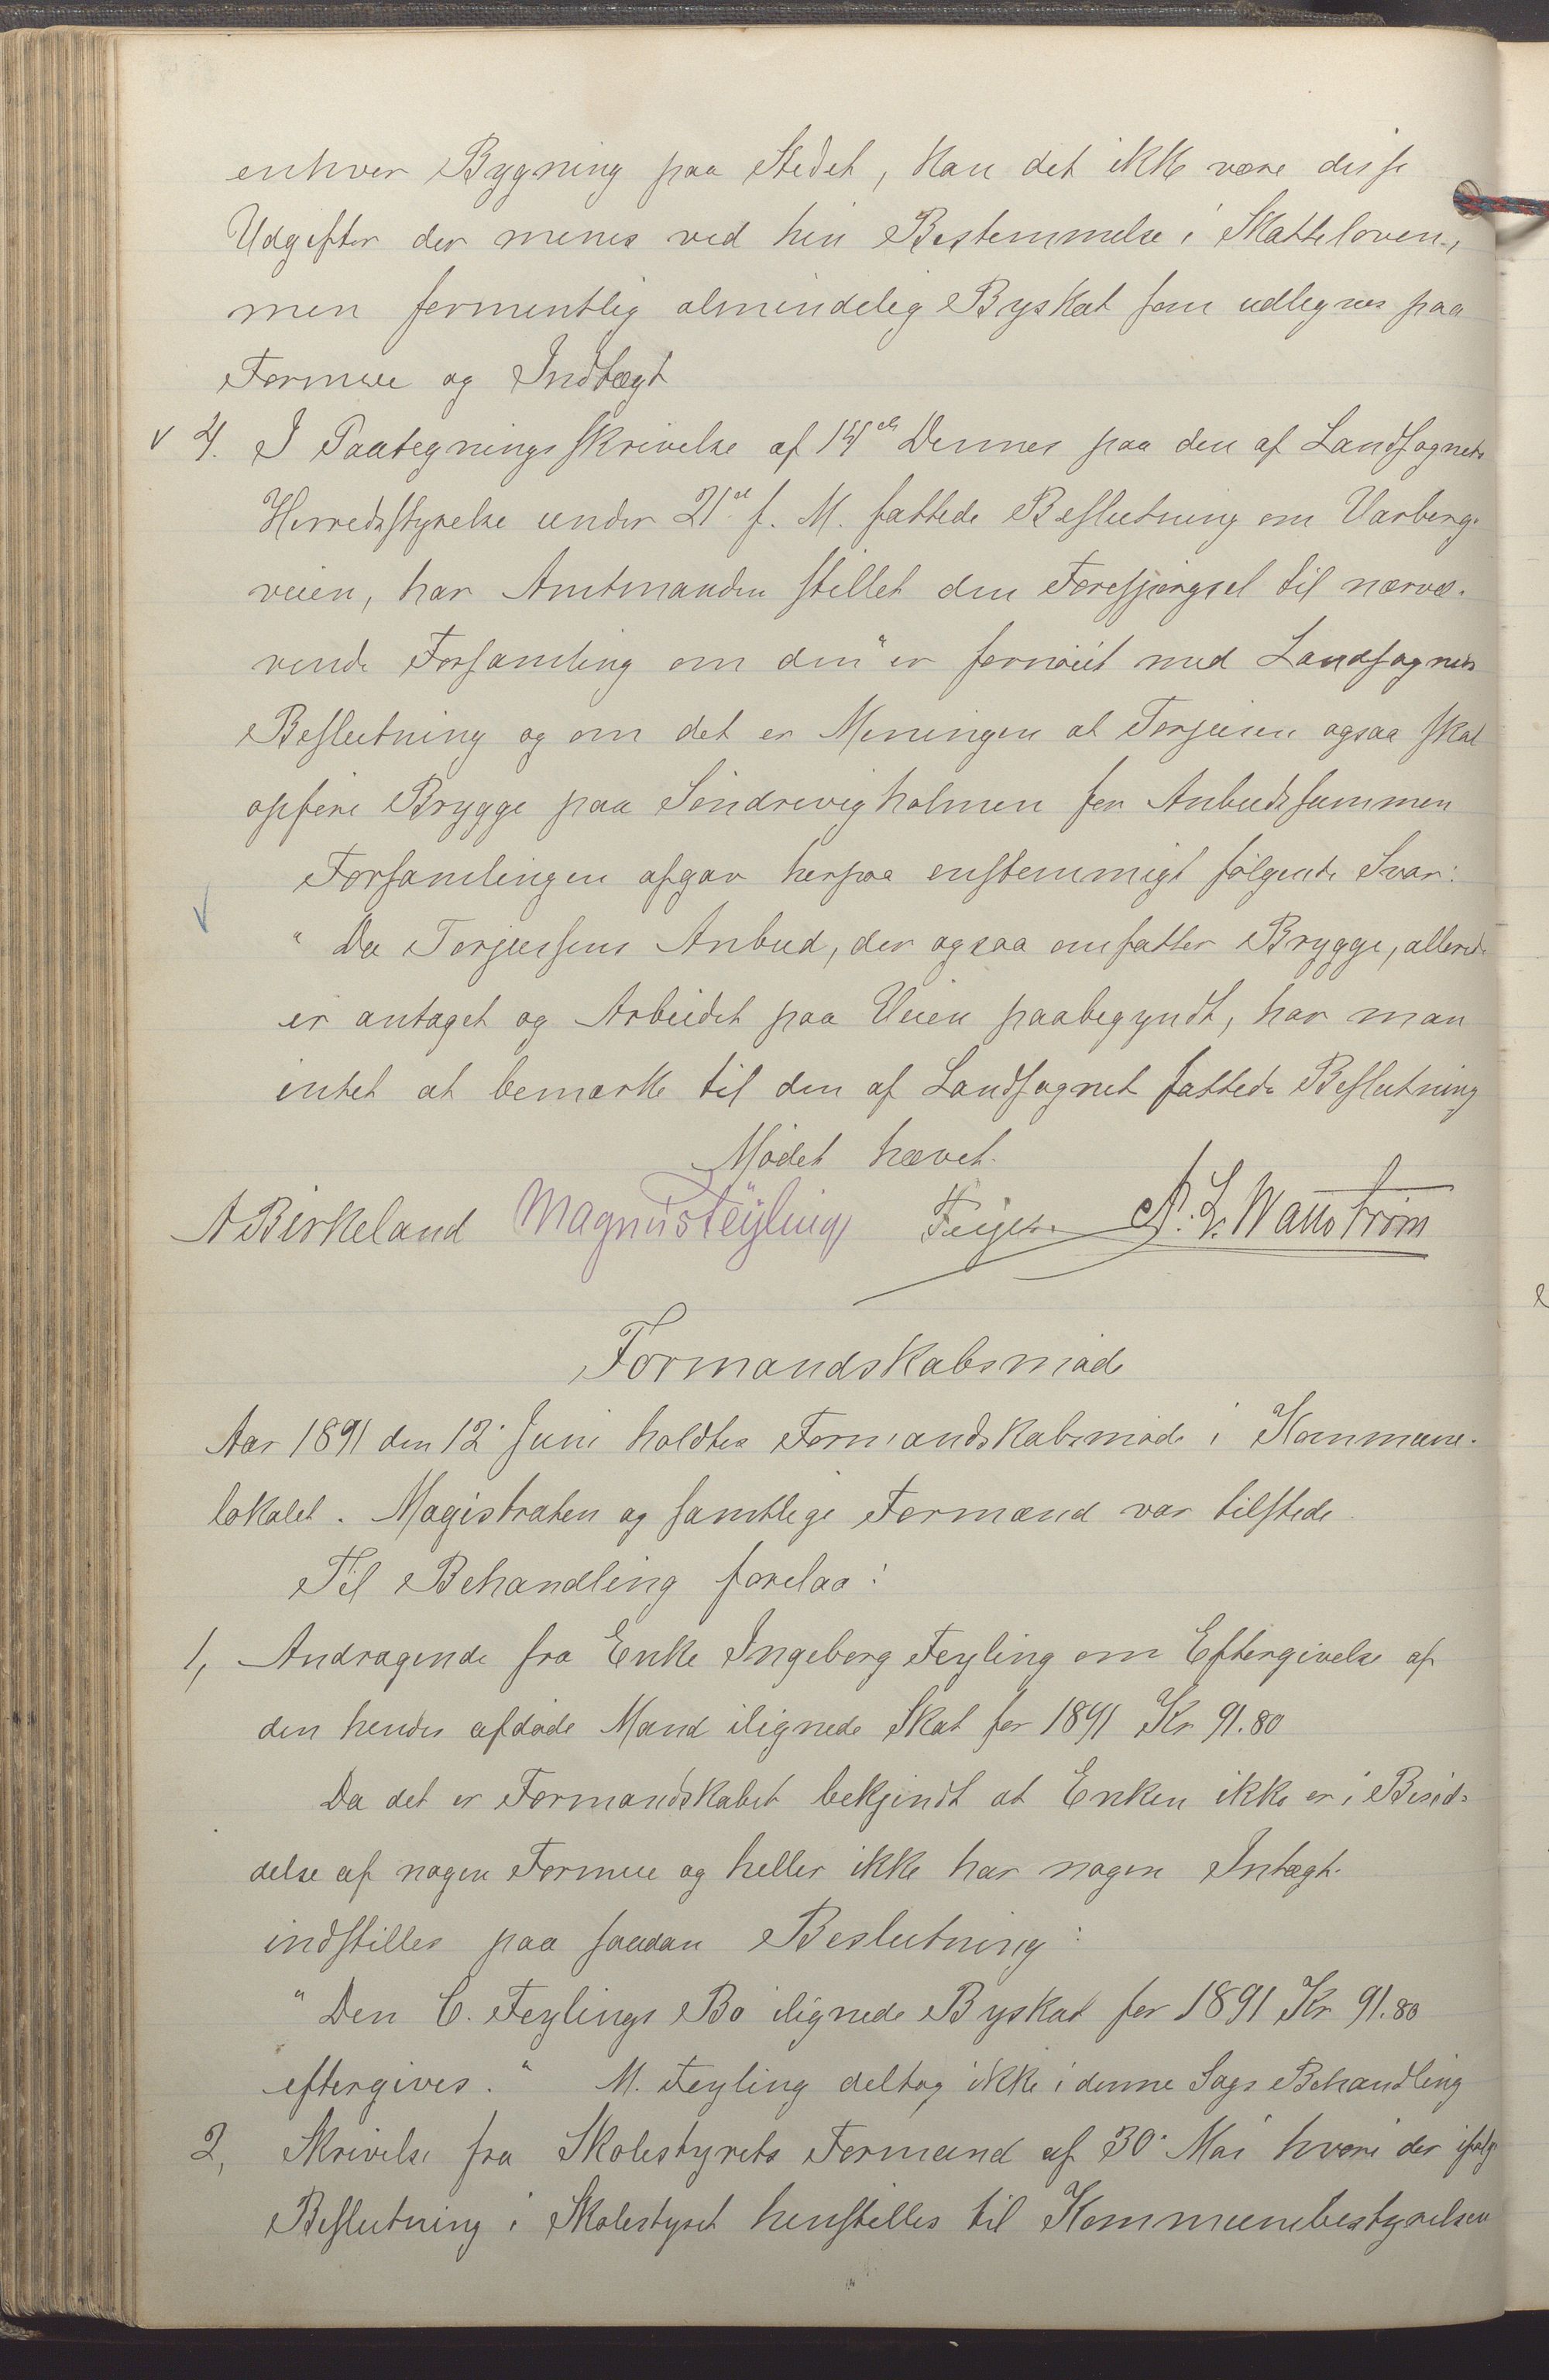 enhver Bygning paa Stedet, kan det ikke være disse
Udgifter der menes ved hin Bestemmelse i Skatteloven,
men formentlig almindelig Byskat som udlignes paa
Formue og Indtægt
v 4. I Paategningsskrivelse af 14de Dennes paa den af Landsognets
Herredsstyrelse under 21de f. M. fattede Beslutning om Varberg-
veien, har Amtmanden stillet den Forespørgsel til nærvæ-
rende Forsamling om den "er fornøiet med Landsognets
Beslutning og om det er Meningen at Torjusen ogsaa skal
opføre Brygge paa Søndrevigholmen for Anbudssummen
Forsamlingen afgav herpaa enstemmigt følgende Svar:
v
" Da Torjussens Anbud, der ogsaa omfatter Brygge, allerede
er antaget og Arbeidet paa Veien paabegyndt, har man
intet at bemærke til den af Landsognet fattede Beslutning
Mødet hævet.
A Birkeland Magnus Feyling A. L. Wattstrøm
Formandskabsmøde
Aar 1891 den 12. Juni holdtes Formandskabsmøde i Kommune-
lokalet. Magistraten og samtlige Formænd var tilstede
Til Behandling forelaa:
1, Andragende fra Enke Ingeborg Feyling om Eftergivelse af
den hendes afdøde Mand ilignede Skat for 1891 Kr 91.80
Da det er Formandskabet bekjendt at Enken ikke er i Besid-
delse af nogen Formue og heller ikke har nogen Intægt
indstilles paa saadan Beslutning:
" Den C. Feylings Bo ilignede Byskat for 1891 Kr 91.80
eftergives." M. Feyling deltog ikke i denne Sags Behandling
2, Skrivelse fra Skolestyrets Formand af 30. Mai hvori der ifølge
Beslutning i Skolestyret henstilles til Kommunebestyrelsen